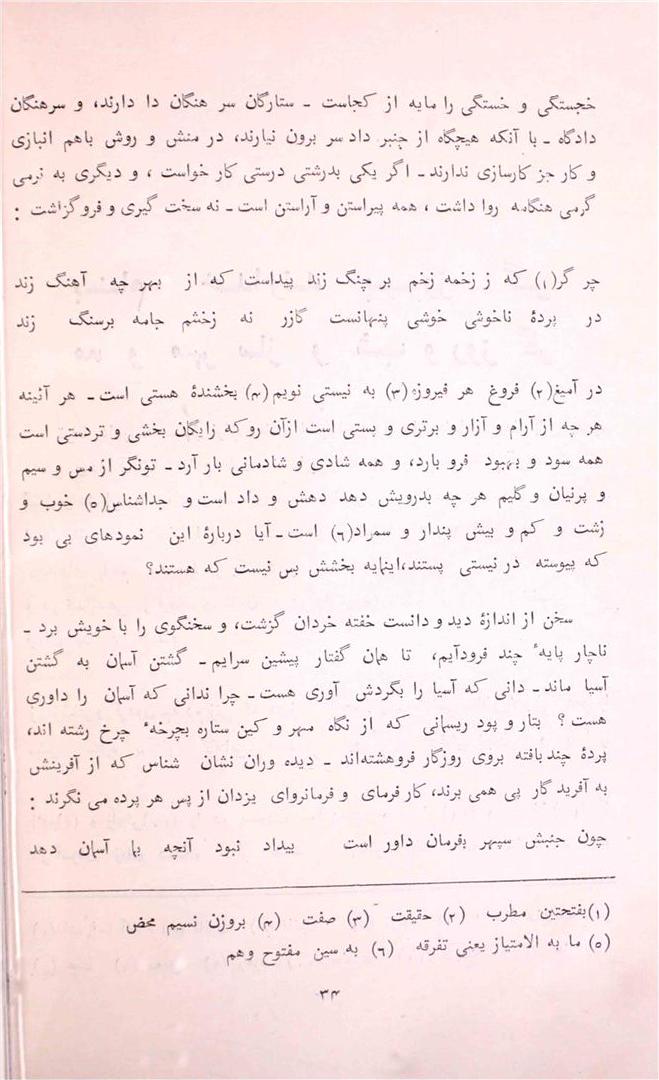 خجستگی و خستگی را مایه از کجاست ـ ستارگان سر هنگان دا دارند، و سرهنگان
دادگاه ـ با آنکه هیچگاه از چنبر داد سر برون نیارند، در منش و روش باهم انبازی
و کار جز کارسازی ندارند ـ اگر یکی بدرشتی درستی کار خواست ، و دیگری به نرمی
گرمی هنگامه روا داشت ، همه پیراستن و آراستن است ـ نه سخت گیری و فروگزاشت :
چر گر(۱) که ز زخمه زخم بر چنگ زند پیداست که از بهر چه آهنگ زند
در پردۀ ناخوشی خوشی پنهانست گازر نه زخشم جامه برسنگ زند
در آمیغ(۲) فروغ هر فیروزه(۳) به نیستی نویم(۴) بخشندۀ هستی است ـ هر آئینه
هر چه از آرام و آزار و برتری و پستی است ازآن روکه رایگان بخشی و تردستی است
همه سود و بهبود فرو بارد، و همه شادی و شادمانی بار آرد ـ تونگر از مس و سیم
و پرنیان و گلیم هر چه بدرویش دهد دهش و داد است و جداشناس(۵) خوب و
زشت و کم و بیش پندار و سمراد(۶) است ـ آیا دربارۀ این نمودهای بی بود
که پیوسته در نیستی پستند،اینمایه بخشش بس نیست که هستند؟
سخن از اندازۀ دید و دانست خفته خردان گزشت، و سخنگوی را با خویش برد ـ
ناچار پایهٔ چند فرودآیم، تا همان گفتار پیشین سرایم ـ گشتن آسمان به گشتن
آسیا ماند ـ دانی که آسیا را بگردش آوری هست ـ چرا ندانی که آسمان را داوری
هست ؟ بتار و پود ریسمانی که از نگاه مهر و کین ستاره بچرخهٔ چرخ رشته اند،
پردۀ چند بافته بروی روزگار فروهشته‌اند ـ دیده وران نشان شناس که از آفرینش
به آفرید گار پی همی برند، کار فرمای و فرمانروای یزدان از پس هر پرده می نگرند :
چون جنبش سپهر بفرمان داور است بیداد نبود آنچه بما آسمان دهد
(۱)بفتحتین مطرب (۲) حقیقت (۳) صفت (۴) بروزن نسیم محض
(۵) ما به الامتیاز یعنی تفرقه (۶) به سین مفتوح وهم
۳۴